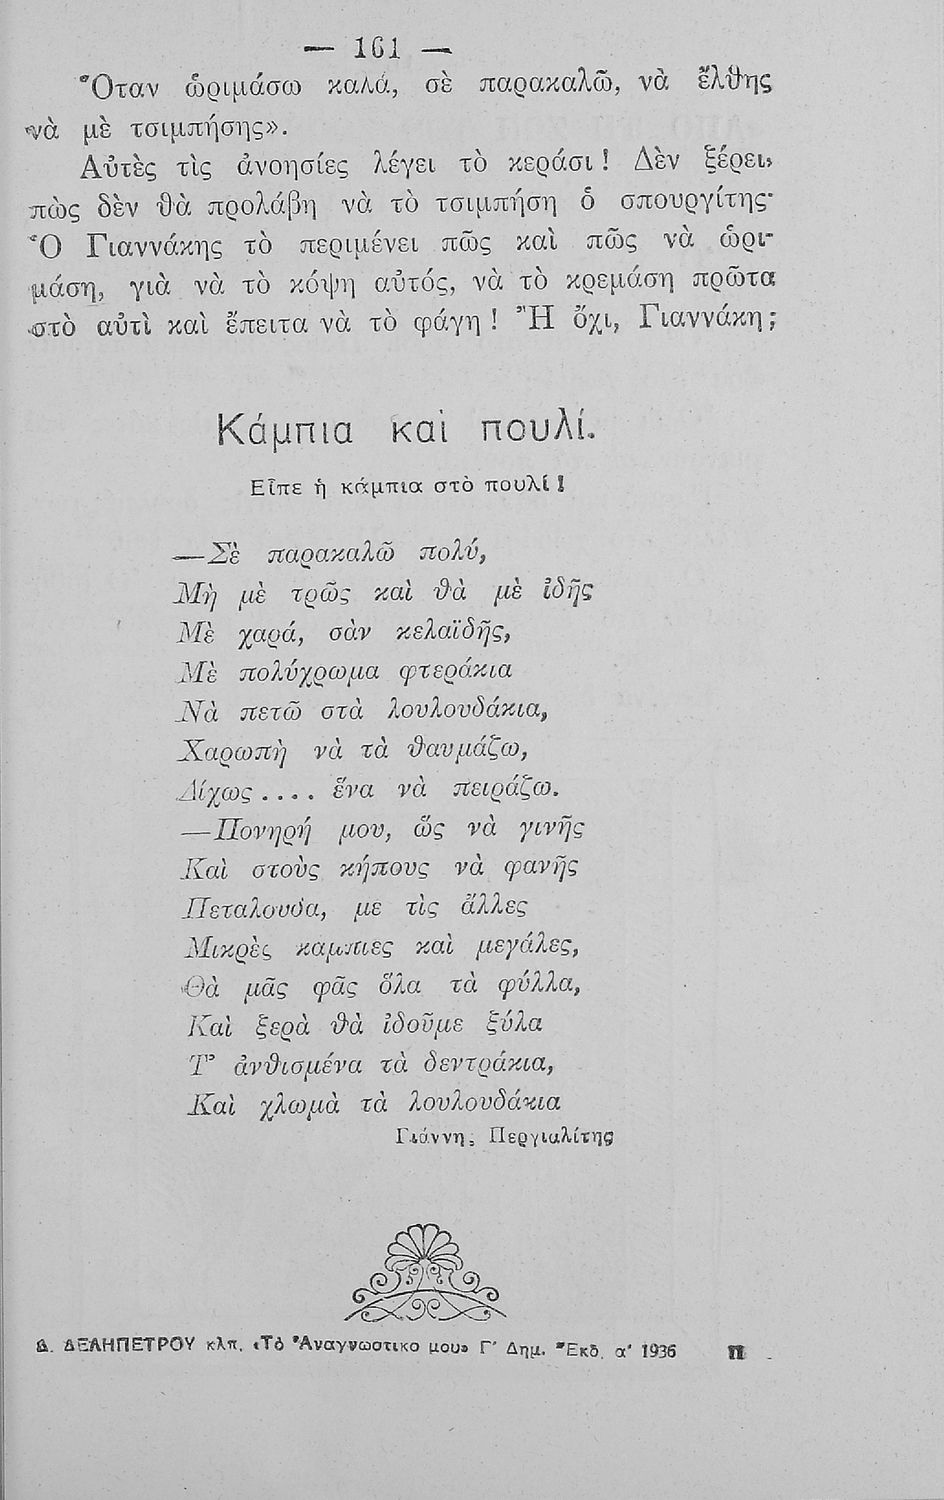 — 161 —
Ὅταν ὡριμάσω καλά, σὲ παρακαλῶ, νὰ ἔλθῃς
νὰ μὲ τσιμπήσῃς».
Αὐτὲς τὶς ἀνοησίες λέγει τὸ κεράσι! Δὲν ξέρει,
πὼς δὲν θὰ προλάβῃ νὰ τὸ τσιμπήσῃ ὁ σπουργίτης·
Ὁ Γιαννάκης τὸ περιμένει πῶς καὶ πῶς νὰ ὡρι-
μάσῃ, γιὰ νὰ τὸ κόψῃ αὐτός, νὰ τὸ κρεμάσῃ πρῶτα
στὸ αὐτὶ καὶ ἔπειτα νὰ τὸ φάγῃ! Ἢ ὄχι, Γιαννάκη;
Κάμπια καὶ πουλί.
Εἶπε ἡ κάμπια στὸ πουλί!
—Σὲ παρακαλῶ πολύ,
Μὴ μὲ τρῶς καὶ θὰ μὲ ἰδῇς
Μὲ χαρά, σὰν κελαϊδῇς,
Μὲ πολύχρωμα φτεράκια
Νὰ πετῶ στὰ λουλουδάκια,
Χαρωπὴ νὰ τὰ θαυμάζω,
Δίχως .... ἕνα νὰ πειράζω.
—Πονηρή μου, ὥς νὰ γινῇς
Καὶ στοὺς κήπους νὰ φανῇς
Πεταλουδα, με τὶς ἄλλες
Μικρὲς καμπιες καὶ μεγάλες,
Θὰ μᾶς φᾶς ὅλα τὰ φύλλα,
Καὶ ξερὰ θὰ ἰδοῦμε ξύλα
Τ' ἀνθισμένα τὰ δεντράκια,
Καὶ χλωμὰ τὰ λουλουδάκια
Γιάννης Περγιαλίτης
Δ. ΔΕΛΗΠΕΤΡΟΥ κλπ. «Τὸ Ἀναγνωστικο μου» Γ' Δημ. Ἔκδ. α' 1936 Π